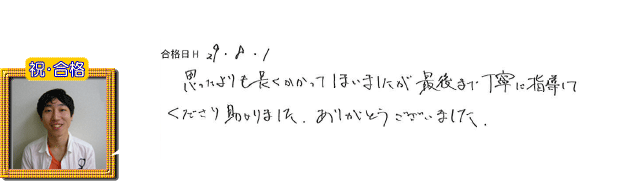 祝・合格
合格日 H 29・8・1
思ったよりも長くかかってしまいましたが最後まで丁寧に指導して
くださり助かりました。ありがとうございました。